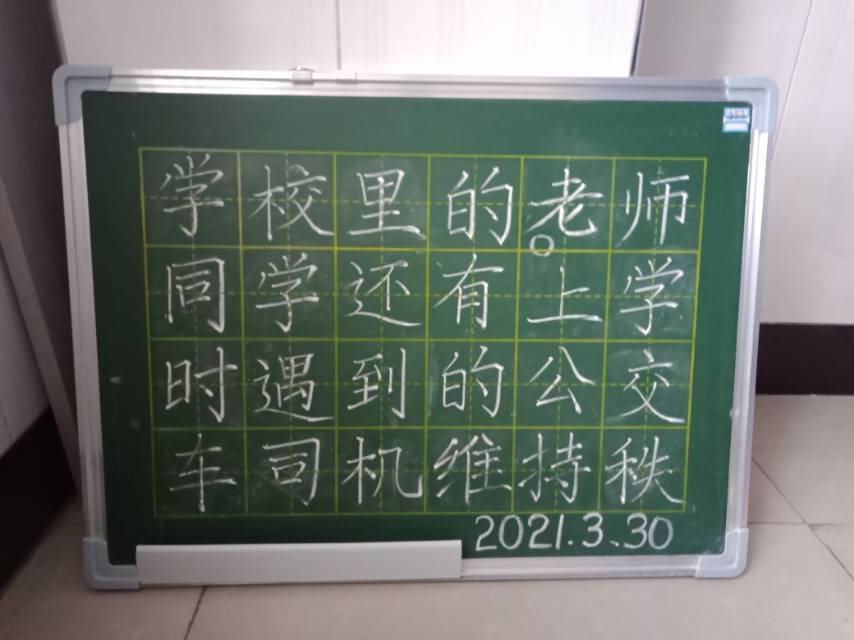 学校里的老师
同学还有上学
时遇到的公交
车司机维持秩
2021.3.30